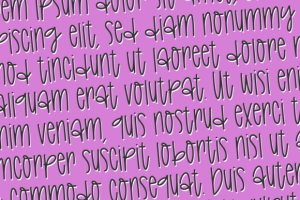 em ipsum dolor sit
piscing elit, sed diam nonummy
mod tincidunt ut laoreet dolore m
aliquam erat volutpat. Ut wisi en
nim veniam, quis nostrud exerci t
ncorper suscipit lobortis nisl ut a
commodo consequat. Duis autem